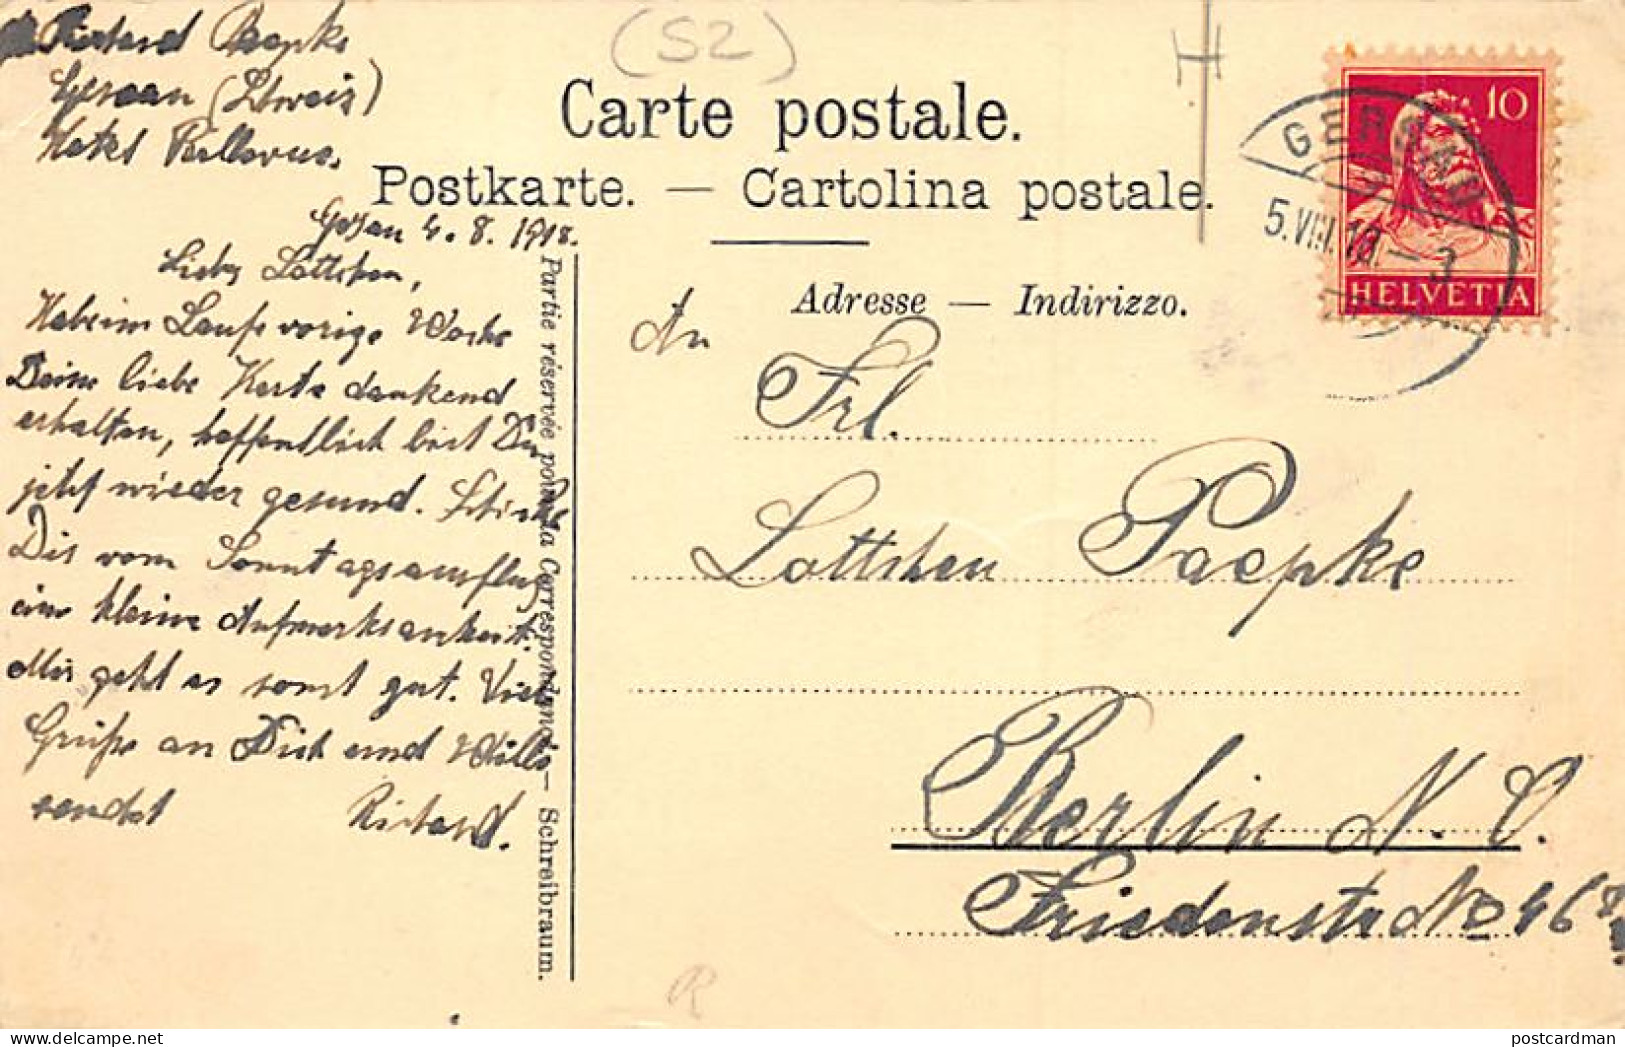 (SZ)
H
Richard Paepke
Gersau (Schweiz)
Hotel Bellevue.
Carte postale.
Postkarte. — Cartolina postale.
Adresse — Indirizzo.
10
HELVETIA
GERSAU
5.VIII.18.–3
Gersau 4. 8. 1918.
Liebes Lottchen,
Habe im Laufe voriger Woche
Deine liebe Karte dankend
erhalten, hoffentlich bist Du
jetzt wieder gesund. Schicke
Dir vom Sonntagsausflug
eine kleine Aufmerksamkeit.
Mir geht es sonst gut. Viele
Grüße an Dich und Willi
sendet Richard.
Partie réservée pour la Correspondance — Schreibraum.
An
Frl.
Lottchen Paepke
Berlin N. O.
Friedenstr No 46
R
postcardman